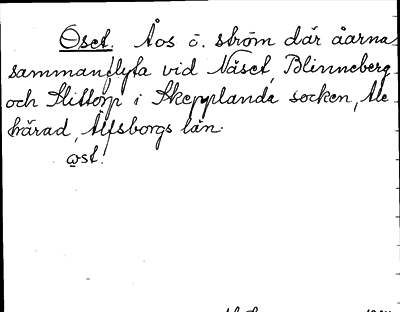 Oset. Åos ö. ström där åarna
sammanflyta vid Näset, Blinneberg
och Slittorp i Skepplanda socken, Ale
härad, Älfsborgs län.
ωst.